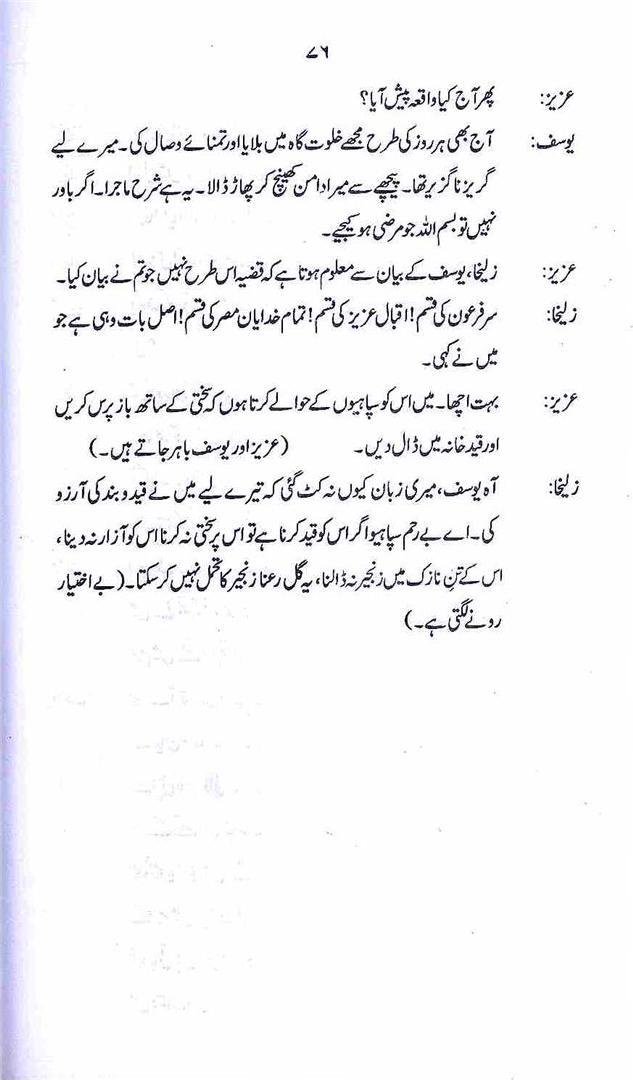 ۷۶
عزیز: پھر آج کیا واقعہ پیش آیا؟
یوسف: آج بھی ہر روز کی طرح مجھے خلوت گاہ میں بلایا اور تمنائے وصال کی۔ میرے لیے
گریز ناگزیر تھا۔ پیچھے سے میرا دامن کھینچ کر پھاڑ ڈالا۔ یہ ہے شرح ماجرا۔ اگر باور
نہیں تو بسم اللہ جو مرضی ہو کیجیے۔
عزیز: زلیخا، یوسف کے بیان سے معلوم ہوتا ہے کہ قضیہ اس طرح نہیں جو تم نے بیان کیا۔
زلیخا: سر فرعون کی قسم! اقبال عزیز کی قسم! تمام خدایان مصر کی قسم! اصل بات وہی ہے جو
میں نے کہی۔
عزیز: بہت اچھا۔ میں اس کو سپاہیوں کے حوالے کرتا ہوں کہ سختی کے ساتھ باز پرس کریں
اور قید خانہ میں ڈال دیں۔ (عزیز اور یوسف باہر جاتے ہیں۔)
زلیخا: آہ یوسف، میری زبان کیوں نہ کٹ گئی کہ تیرے لیے میں نے قید و بند کی آرزو
کی۔ اے بے رحم سپاہیو اگر اس کو قید کرنا ہے تو اس پر سختی نہ کرنا اس کو آزار نہ دینا،
اس کے تنِ نازک میں زنجیر نہ ڈالنا، یہ گل رعنا زنجیر کا تحمل نہیں کر سکتا۔ (بے اختیار
رونے لگتی ہے۔)